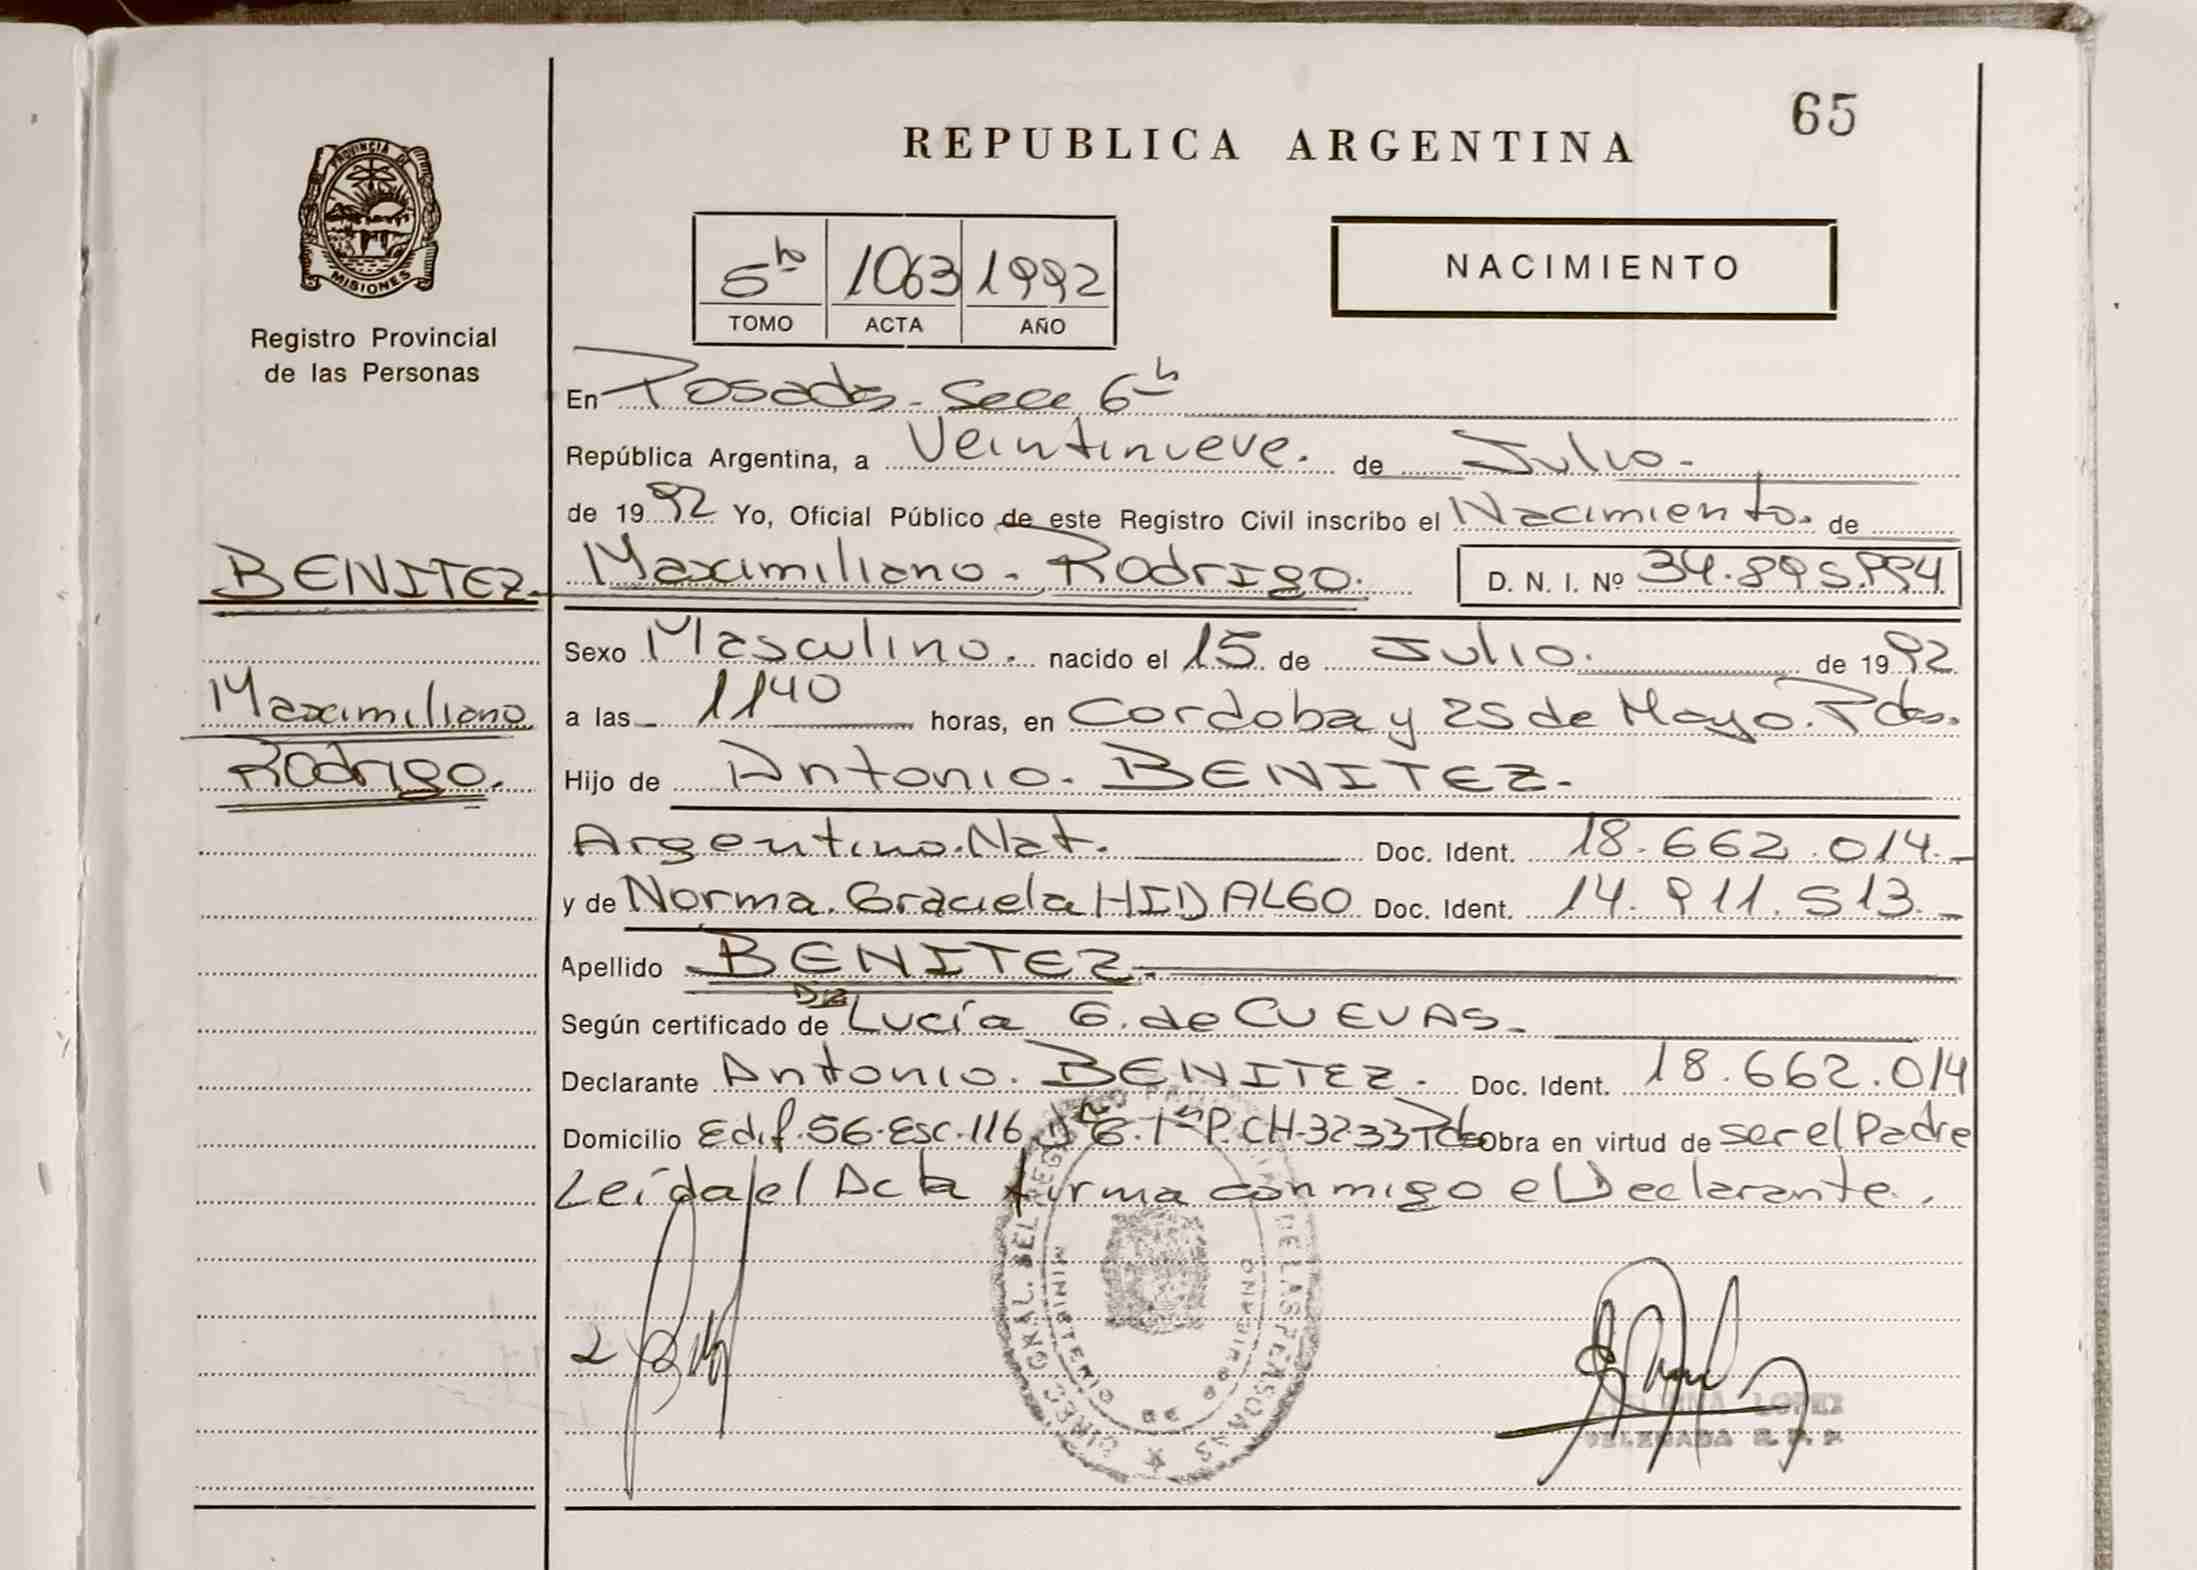 65
REPUBLICA ARGENTINA
PROVINCIA DE
MISIONES
Registro Provincial
de las Personas
5º 1063 1992
TOMO ACTA AÑO
NACIMIENTO
En Posadas - Secc 6ª
República Argentina, a Veintinueve. de Julio.-
de 1992 Yo, Oficial Público de este Registro Civil inscribo el Nacimiento. de
BENITEZ. Maximiliano. Rodrigo. D. N. I. Nº 34.895.994
Sexo Masculino. nacido el 15 de Julio. de 1992
Maximiliano a las 1140 horas, en Cordoba y 25 de Mayo. Pdas.
Rodrigo. Hijo de Antonio. BENITEZ.-
Argentino. Nat. Doc. Ident. 18.662.014.-
y de Norma. Graciela HIDALGO Doc. Ident. 14.911.513.-
Apellido BENITEZ.-
Según certificado de Dra Lucía G. de CUEVAS.-
Declarante Antonio. BENITEZ. Doc. Ident. 18.662.014
Domicilio Edif.56.Esc.116 6.1ºP.CH-32-33 Pdas Obra en virtud de ser el Padre
Leída el Acta firma conmigo el Declarante.
DIREC. GRAL. DEL REGISTRO DE LAS PERSONAS
MINISTERIO DE GOBIERNO
LOPEZ
DELEGADA R. P. P.